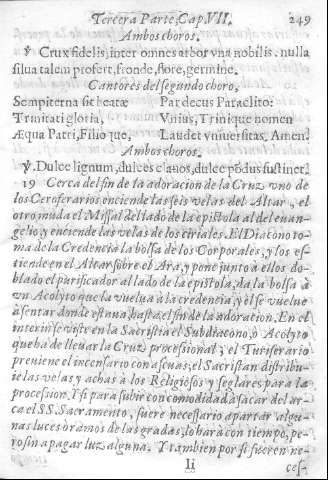 Tercera Parte, Cap. VII. 249
Ambos choros.
℣ Crux fidelis, inter omnes arbor vna nobilis. nulla
silua talem profert, fronde, flore, germine.
Cantores del segundo choro.
Sempiterna sit beatæ Par decus Paraclito:
Trinitati gloria, Vnius, Trinique nomen
Æqua Patri, Filio que, Laudet vniuersitas, Amen.
Ambos choros.
℣. Dulce lignum, dulces clauos, dulce põdus sustinet.
19 Cerca del fin de la adoracion de la Cruz vno de
los Ceroferarios enciende las seis velas del Altar, el
otro muda el Missal del lado de la epistola al del euan-
gelio, y enciende las velas de los ciriales. El Diacono to-
ma de la Credencia la bolsa de los Corporales, y los es-
tiende en el Altar sobre el Ara, y pone junto a ellos do-
blado el purificador al lado de la epistola, da la bolsa à
vn Acolyto que la vuelua à la credencia, y èl se vuelue
a sentar donde estaua, hasta el fin de la adoracion. En el
interin se viste en la Sacristia el Subdiacono, ò Acolyto
que ha de lleuar la Cruz processional, el Turiferario
preuiene el incensario con ascuas, el Sacristan distribu-
ie las velas y achas à los Religiosos y seglares para la
procession. Y si para subir con comodidad a sacar del ar-
ca el SS. Sacramento, fuere necessario apartar algu-
nas luces ò ramos de las gradas, lo harà con tiempo, pe-
ro sin apagar luz alguna. Y tambien por si fueren ne-
Ii ces-